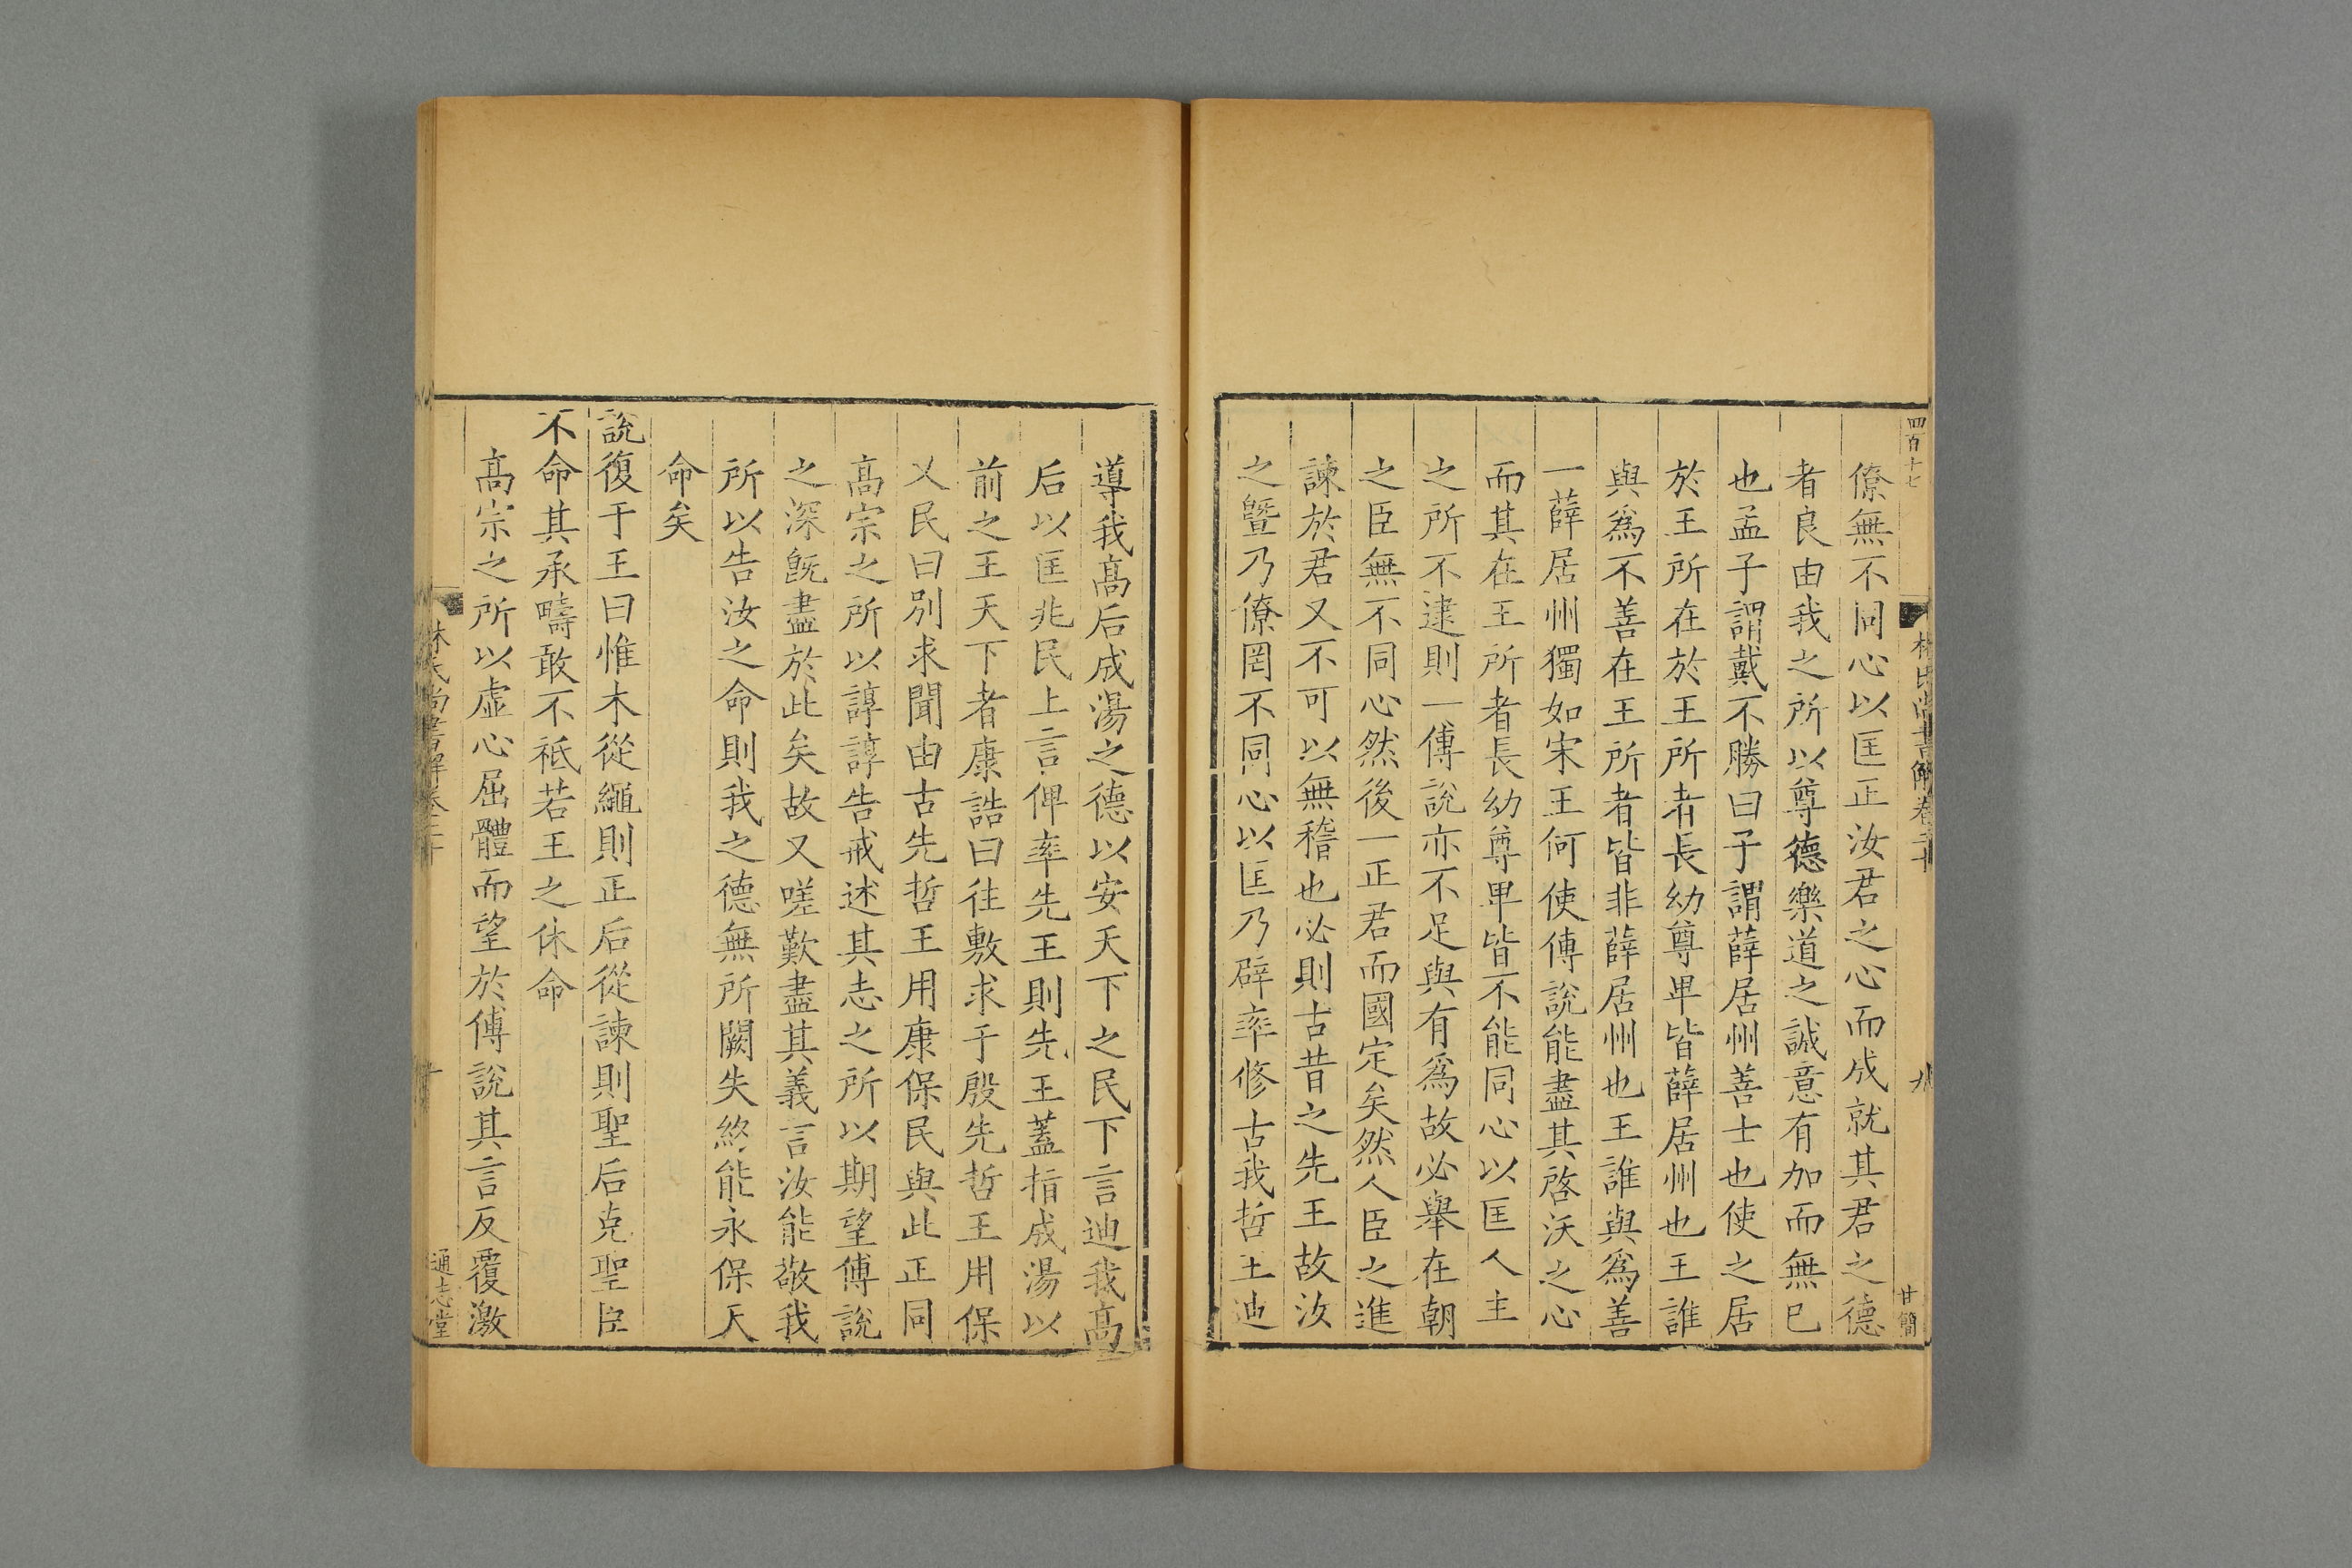 四百十七
林氏尚書解卷二十
九
甘簡
僚無不同心以匡正汝君之心而成就其君之德
者良由我之所以尊德樂道之誠意有加而無已
也孟子謂戴不勝曰子謂薛居州善士也使之居
於王所在於王所者長幼尊卑皆薛居州也王誰
與爲不善在王所者皆非薛居州也王誰與爲善
一薛居州獨如宋王何使傅說能盡其啓沃之心
而其在王所者長幼尊卑皆不能同心以匡人主
之所不逮則一傅說亦不足與有爲故必舉在朝
之臣無不同心然後一正君而國定矣然人臣之進
諫於君又不可以無稽也必則古昔之先王故汝
之曁乃僚罔不同心以匡乃辟率修古我哲王迪
導我高后成湯之德以安天下之民下言迪我高
后以匡兆民上言俾率先王則先王蓋指成湯以
前之王天下者康誥曰往敷求于殷先哲王用保
乂民曰別求聞由古先哲王用康保民與此正同
高宗之所以諄諄告戒述其志之所以期望傅說
之深旣盡於此矣故又嗟歎盡其義言汝能敬我
所以告汝之命則我之德無所闕失終能永保天
命矣
說復于王曰惟木從繩則正后從諫則聖后克聖臣
不命其承疇敢不祗若王之休命
高宗之所以虛心屈體而望於傅說其言反覆激
林氏尚書解卷二十
十
通志堂